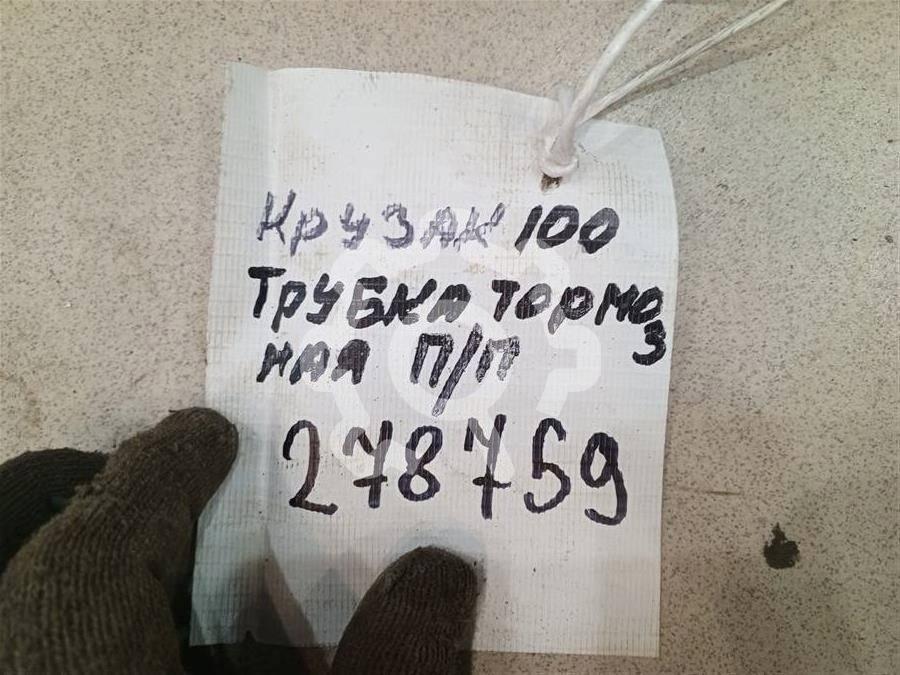 Крузак 100
Трубка тормоз
ная П/П
278759